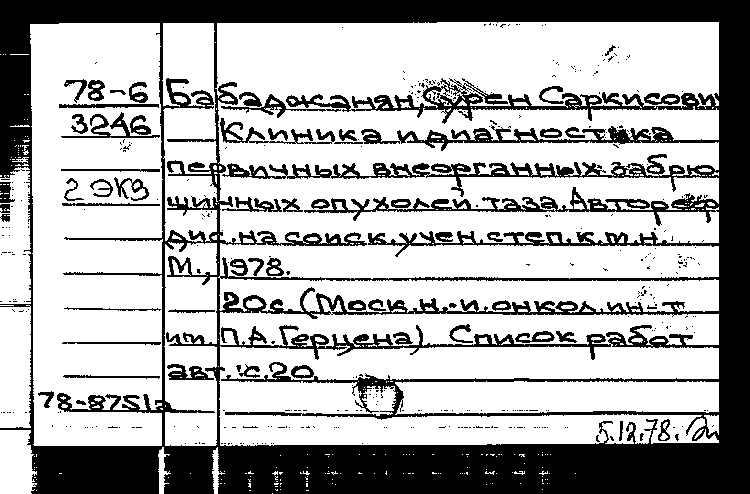 78-6 Бабаджанян, Сурен Саркисович
3246 Клиника и диагностика
первичных внеорганных забрю-
2 экз щинных опухолей таза. Автореф.
дис. на соиск. учен. степ. к.м.н.
М., 1978.
20с. (Моск. н.-и. онкол. ин-т
им. П.А. Герцена) Список работ
авт.: с. 20.
78-8751а
5.12.78.